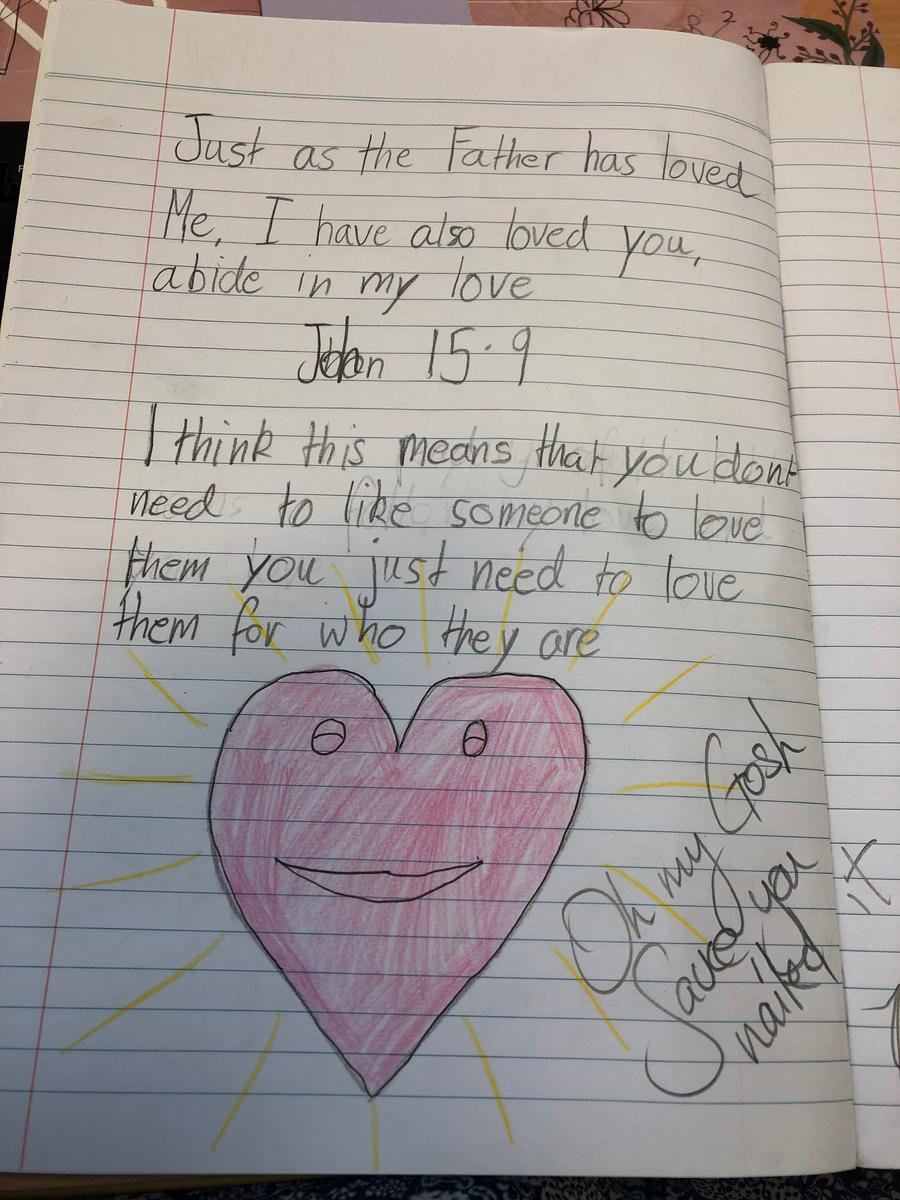 Just as the Father has loved
Me, I have also loved you,
abide in my love
John 15:9
I think this means that you dont
need to like someone to love
them you just need to love
them for who they are
Oh my Gosh
you
nailed it